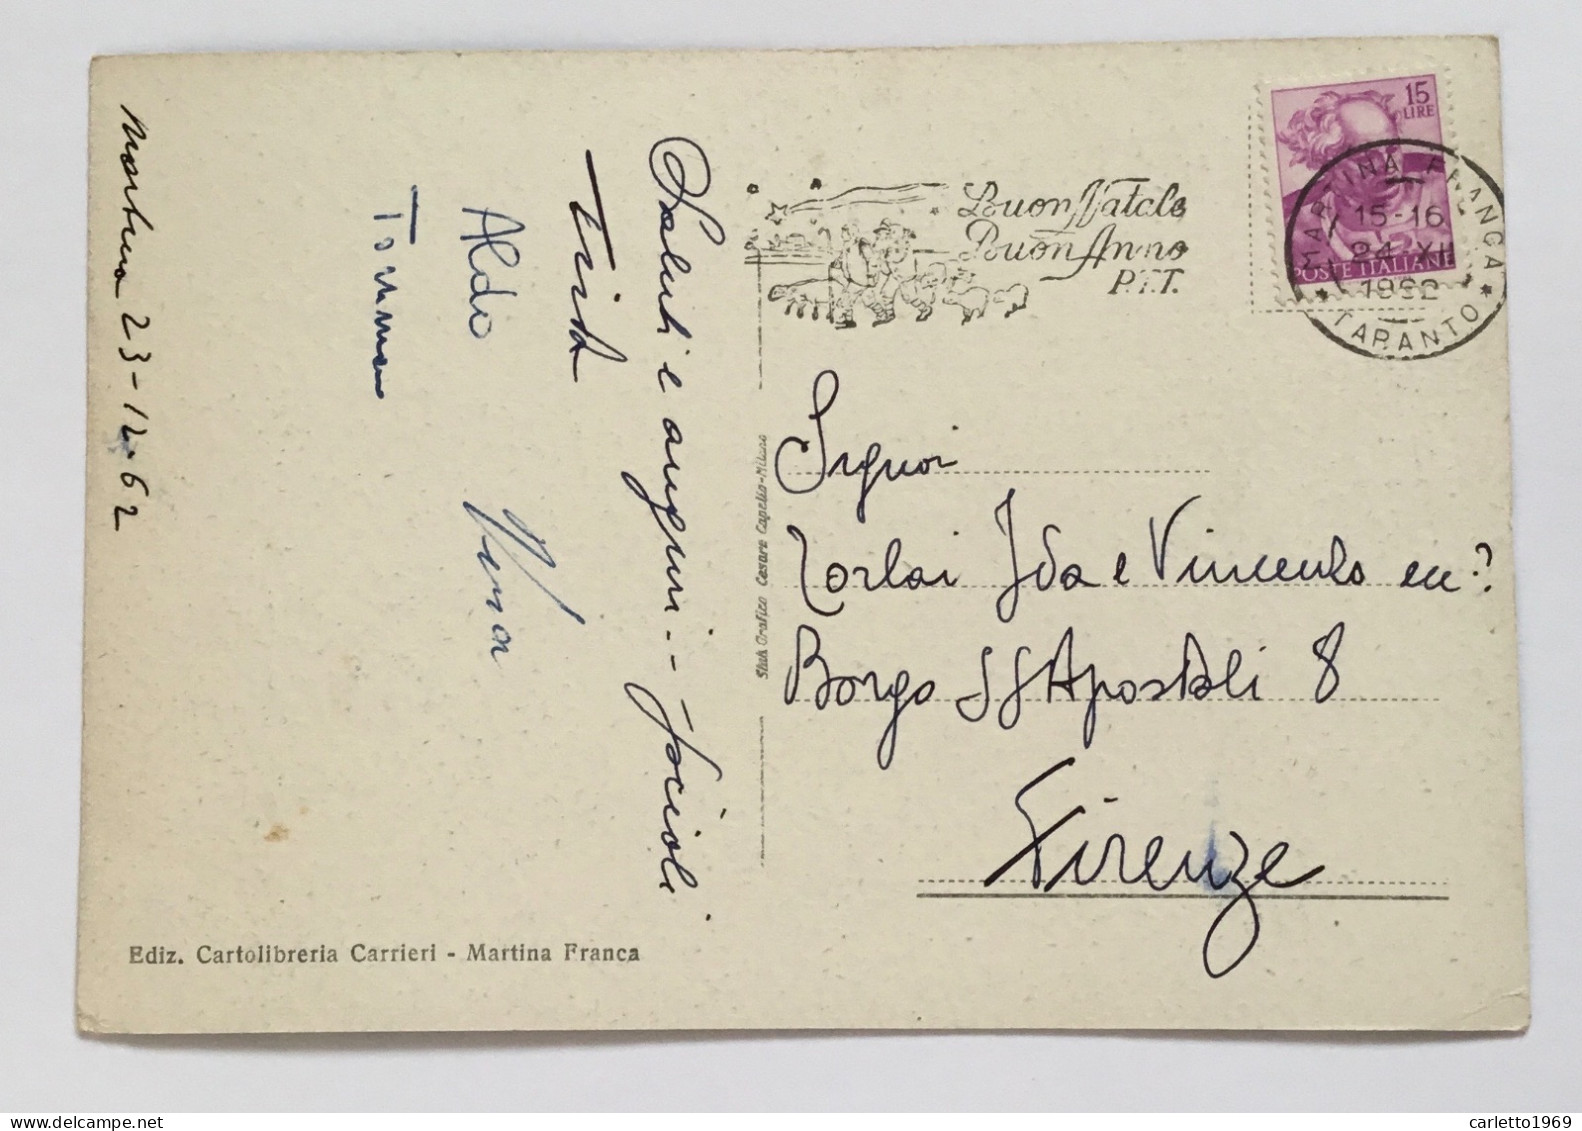 Martina 23-12-62
Saluti e auguri -
Aldo
Buon Natale
Buon Anno
P.T.T.
15
LIRE
POSTE ITALIANE
MARTINA FRANCA
15-16
24 XII
1962
* TARANTO *
Signori
Zorlai Ida e Vincenzo
Borgo SS Apostoli 8
Firenze
Stab. Grafico Cesare Capello-Milano
Ediz. Cartolibreria Carrieri - Martina Franca
carletto1969